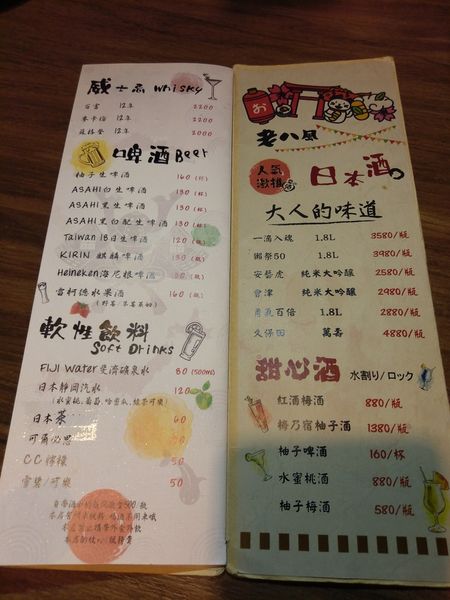 威士忌 Whisky
百富 12年 2200
麥卡倫 12年 2200
蘇格登 12年 2000
啤酒 Beer
柚子生啤酒 160(杯)
ASAHI白生啤酒 130(杯)
ASAHI黑生啤酒 130(杯)
ASAHI黑白配生啤酒 130(杯)
Taiwan 18日生啤酒 120(瓶)
KIRIN 麒麟啤酒 130(瓶)
Heineken海尼根啤酒 130(瓶)
雪柯德水果酒 160(瓶)
軟性飲料
Soft Drinks
FIJI Water斐濟礦泉水 80(500ml)
日本靜岡汽水 120
(水蜜桃、葡萄、哈密瓜、綠茶可樂)
日本茶 60
可爾必思 50
CC檸檬 50
雪碧/可樂 50
お
老八風
人氣
激推
日本酒
大人的味道
一滴入魂 1.8L 3580/瓶
獺祭50 1.8L 3980/瓶
安藝虎 純米大吟釀 2580/瓶
會津 純米大吟釀 2980/瓶
勇氣百倍 1.8L 2880/瓶
久保田 萬壽 4880/瓶
甜心酒 水割り/ロック
紅酒梅酒 880/瓶
梅乃宿柚子酒 1380/瓶
柚子啤酒 160/杯
水蜜桃酒 880/瓶
柚子梅酒 580/瓶